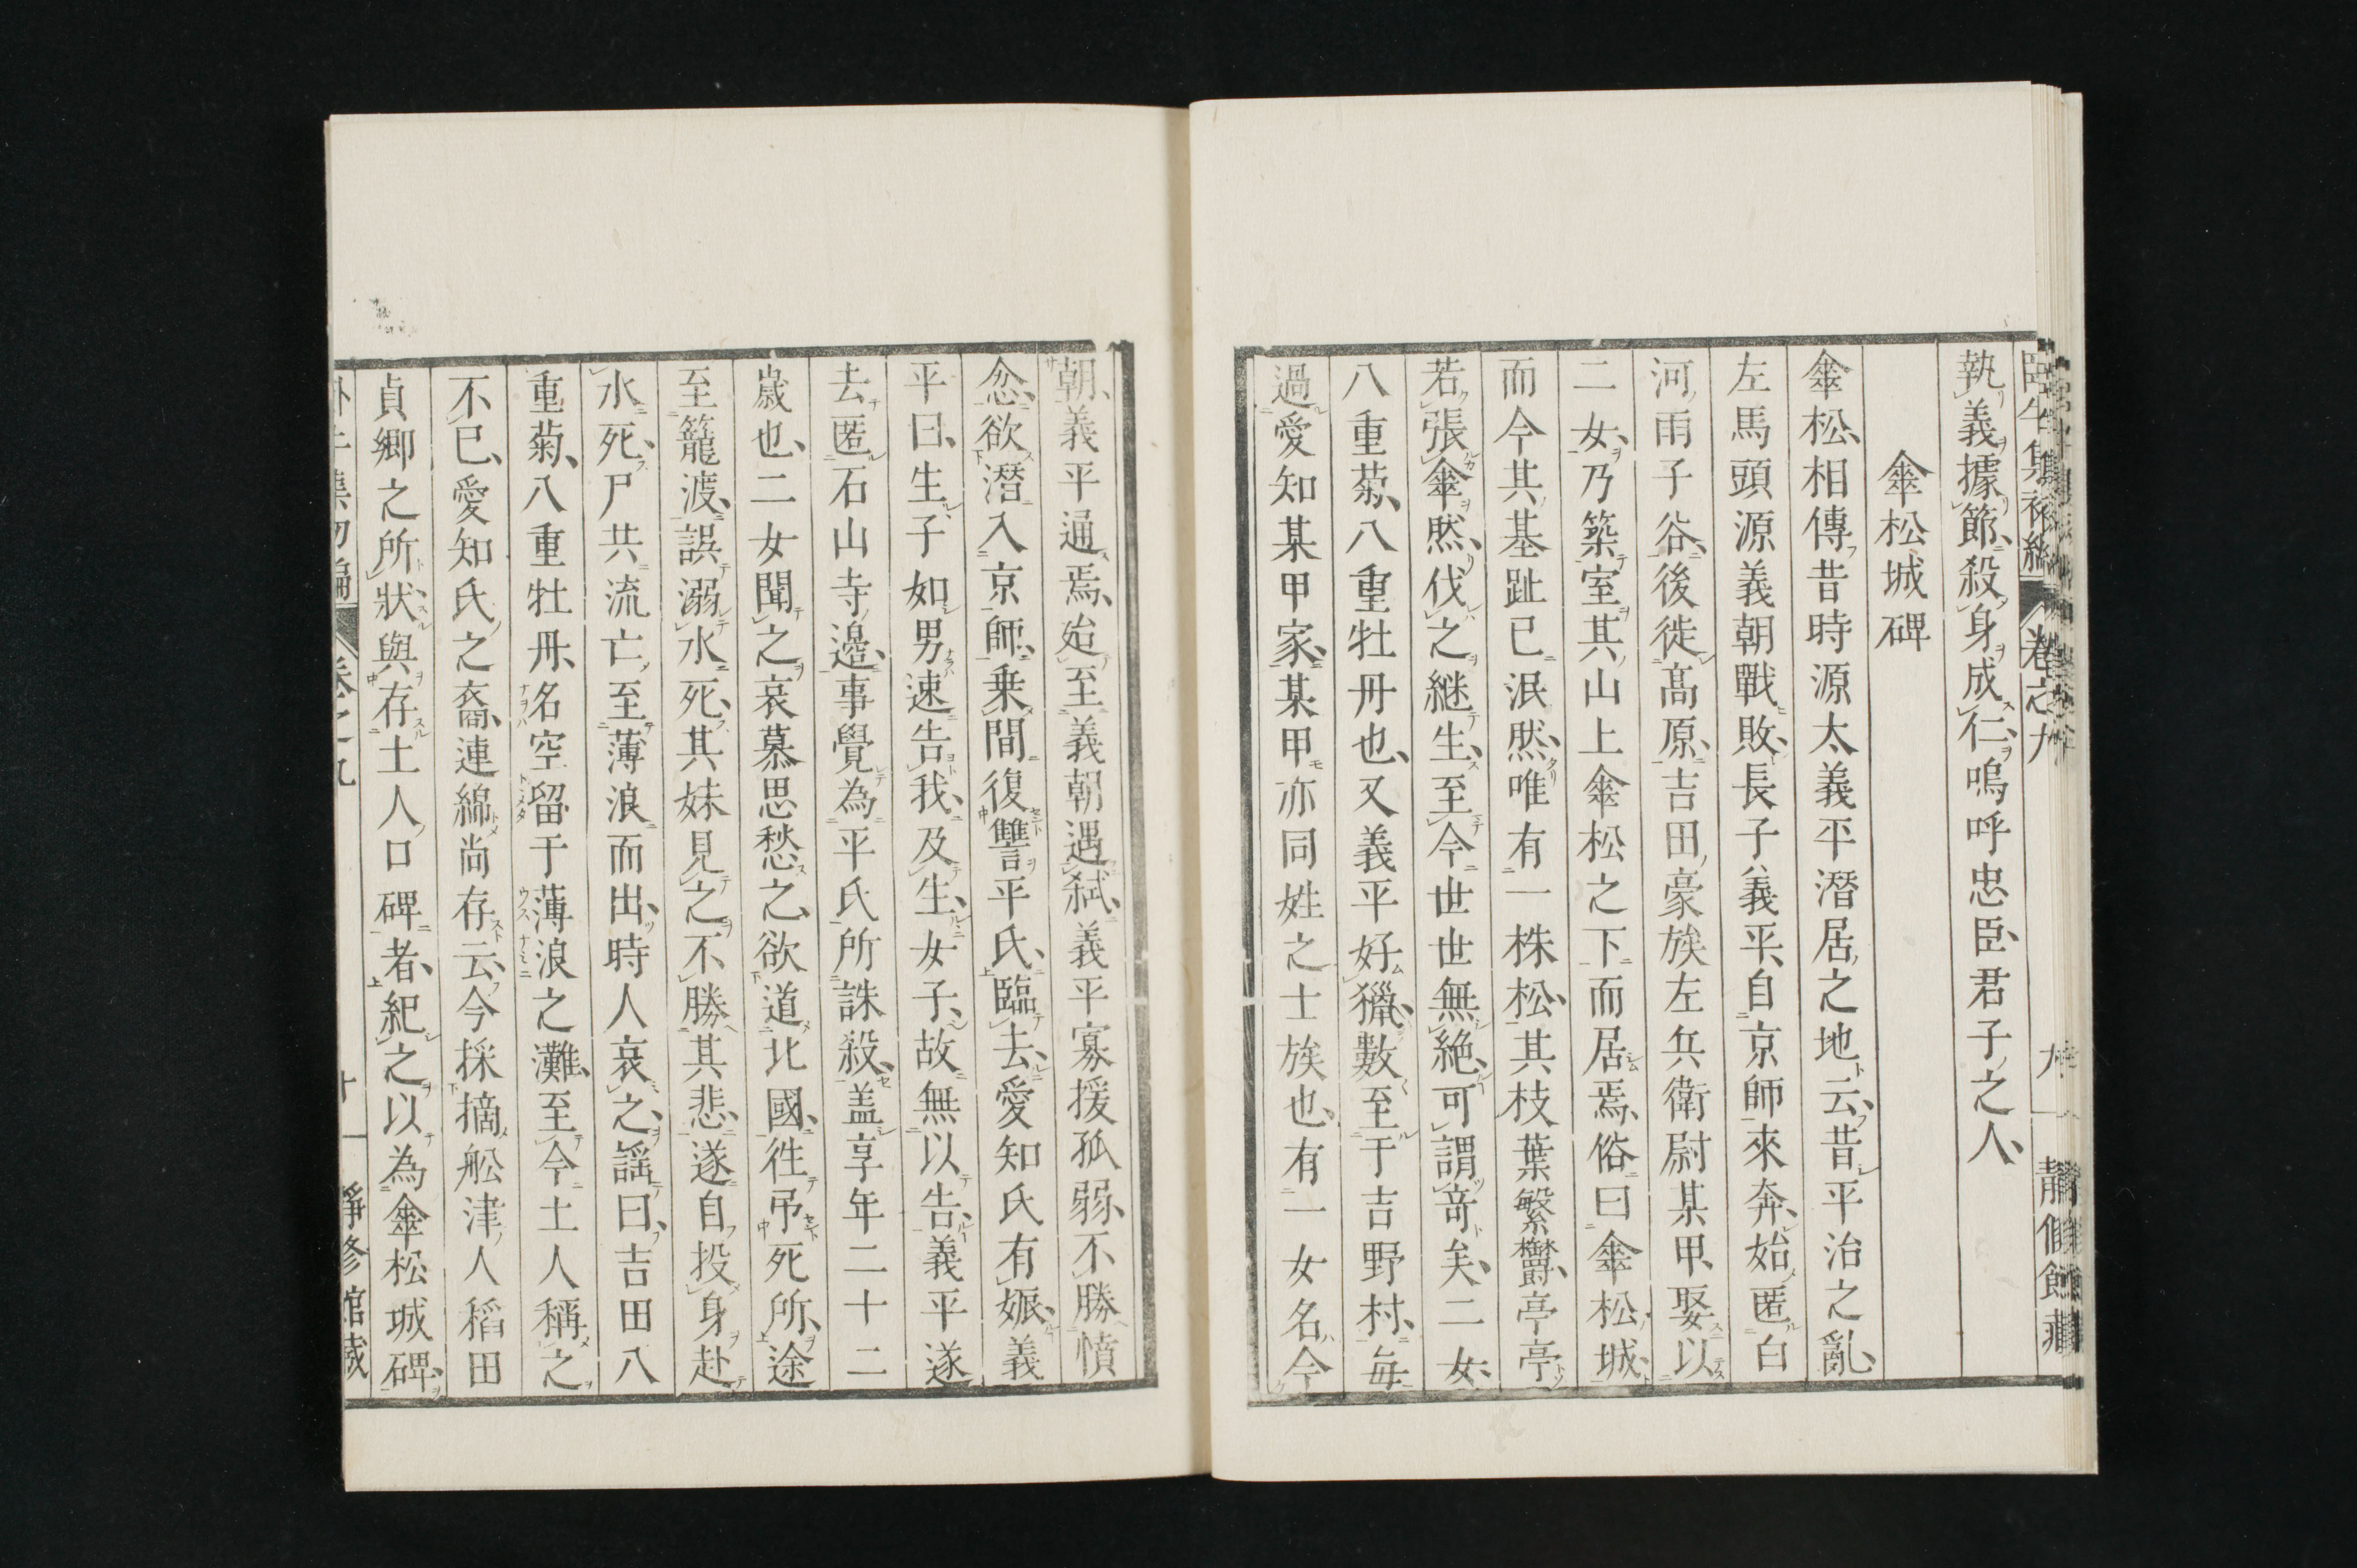 執義據節、殺身成仁、嗚呼忠臣、君子之人、
傘松城碑
傘松、相傳昔時源太義平潛居之地云、昔平治之亂、
左馬頭源義朝戰敗、長子義平、自京師來奔、始匿白
河雨子谷、後徙髙原、吉田豪族左兵衛尉某甲、娶以
二女、乃築室其山上傘松之下而居焉、俗曰傘松城、
而今其基趾已泯然、唯有一株松、其枝葉繁欝、亭亭
若張傘然、伐之継生、至今世世無絶、可謂竒矣、二女、
八重菊、八重牡丹也、又義平好獵、數至于吉野村、每
過愛知某甲家、某甲亦同姓之士族也、有一女名今
朝、義平通焉、迨至義朝遇弑、義平寡援孤弱、不勝憤
忿、欲潛入京師、乗間復讐平氏、臨去、愛知氏有娠、義
平曰、生子如男速告我、及生、女子、故無以告、義平遂
去匿石山寺邊、事覺為平氏所誅殺、盖享年二十二
歲也、二女聞之哀慕思愁之、欲道北國、徃吊死所、途
至籠渡、誤溺水死、其妹見之不勝其悲、遂自投身赴
水死、尸共流亡、至薄浪而出、時人哀之、謡曰、吉田八
重菊、八重牡丹、名空留于薄浪之灘、至今土人稱之
不已、愛知氏之裔、連綿尚存云、今採摘舩津人稻田
貞郷之所狀與存土人口碑者、紀之以為傘松城碑、
卷之九